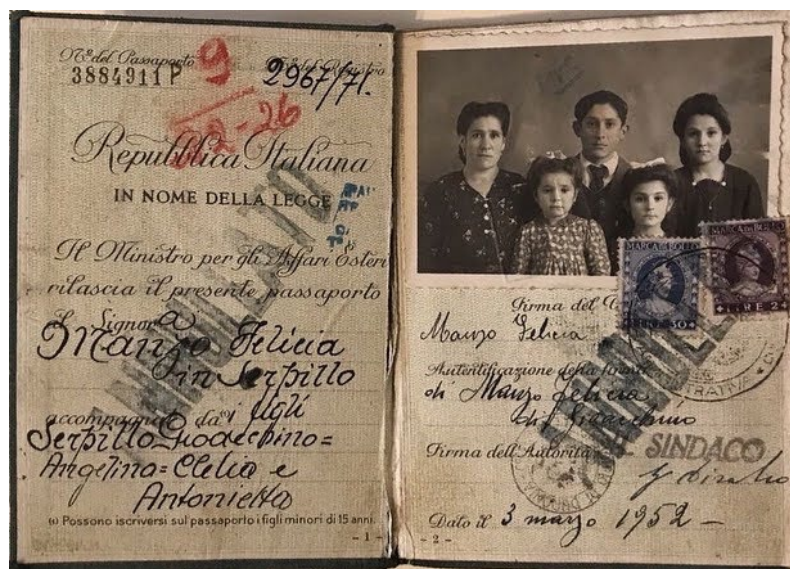 Nº del Passaporto
3884911 P
9
Nº del Registro
2967/71.
22-26
Repubblica Italiana
IN NOME DELLA LEGGE
Il Ministro per gli Affari Esteri
rilascia il presente passaporto
al Signora
Manzo Felicia
in Serpillo
accompagnato da i figli
Serpillo Gioacchino=
Angelina= Clelia e
Antonietta
(1) Possono iscriversi sul passaporto i figli minori di 15 anni.
- 1 -
ANNULLATO
MARCA DA BOLLO
LIRE 50
MARCA DA BOLLO
LIRE 2
Firma del
Manzo Felicia
Autentificazione della firma
di Manzo Felicia
di Gioacchino
Firma dell'Autorità
IL SINDACO
Dato il 3 marzo 1952 -
- 2 -
ANNULLATO